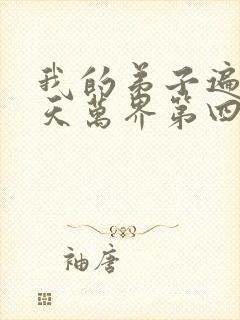 我的弟子遍
天萬界第四
袖唐